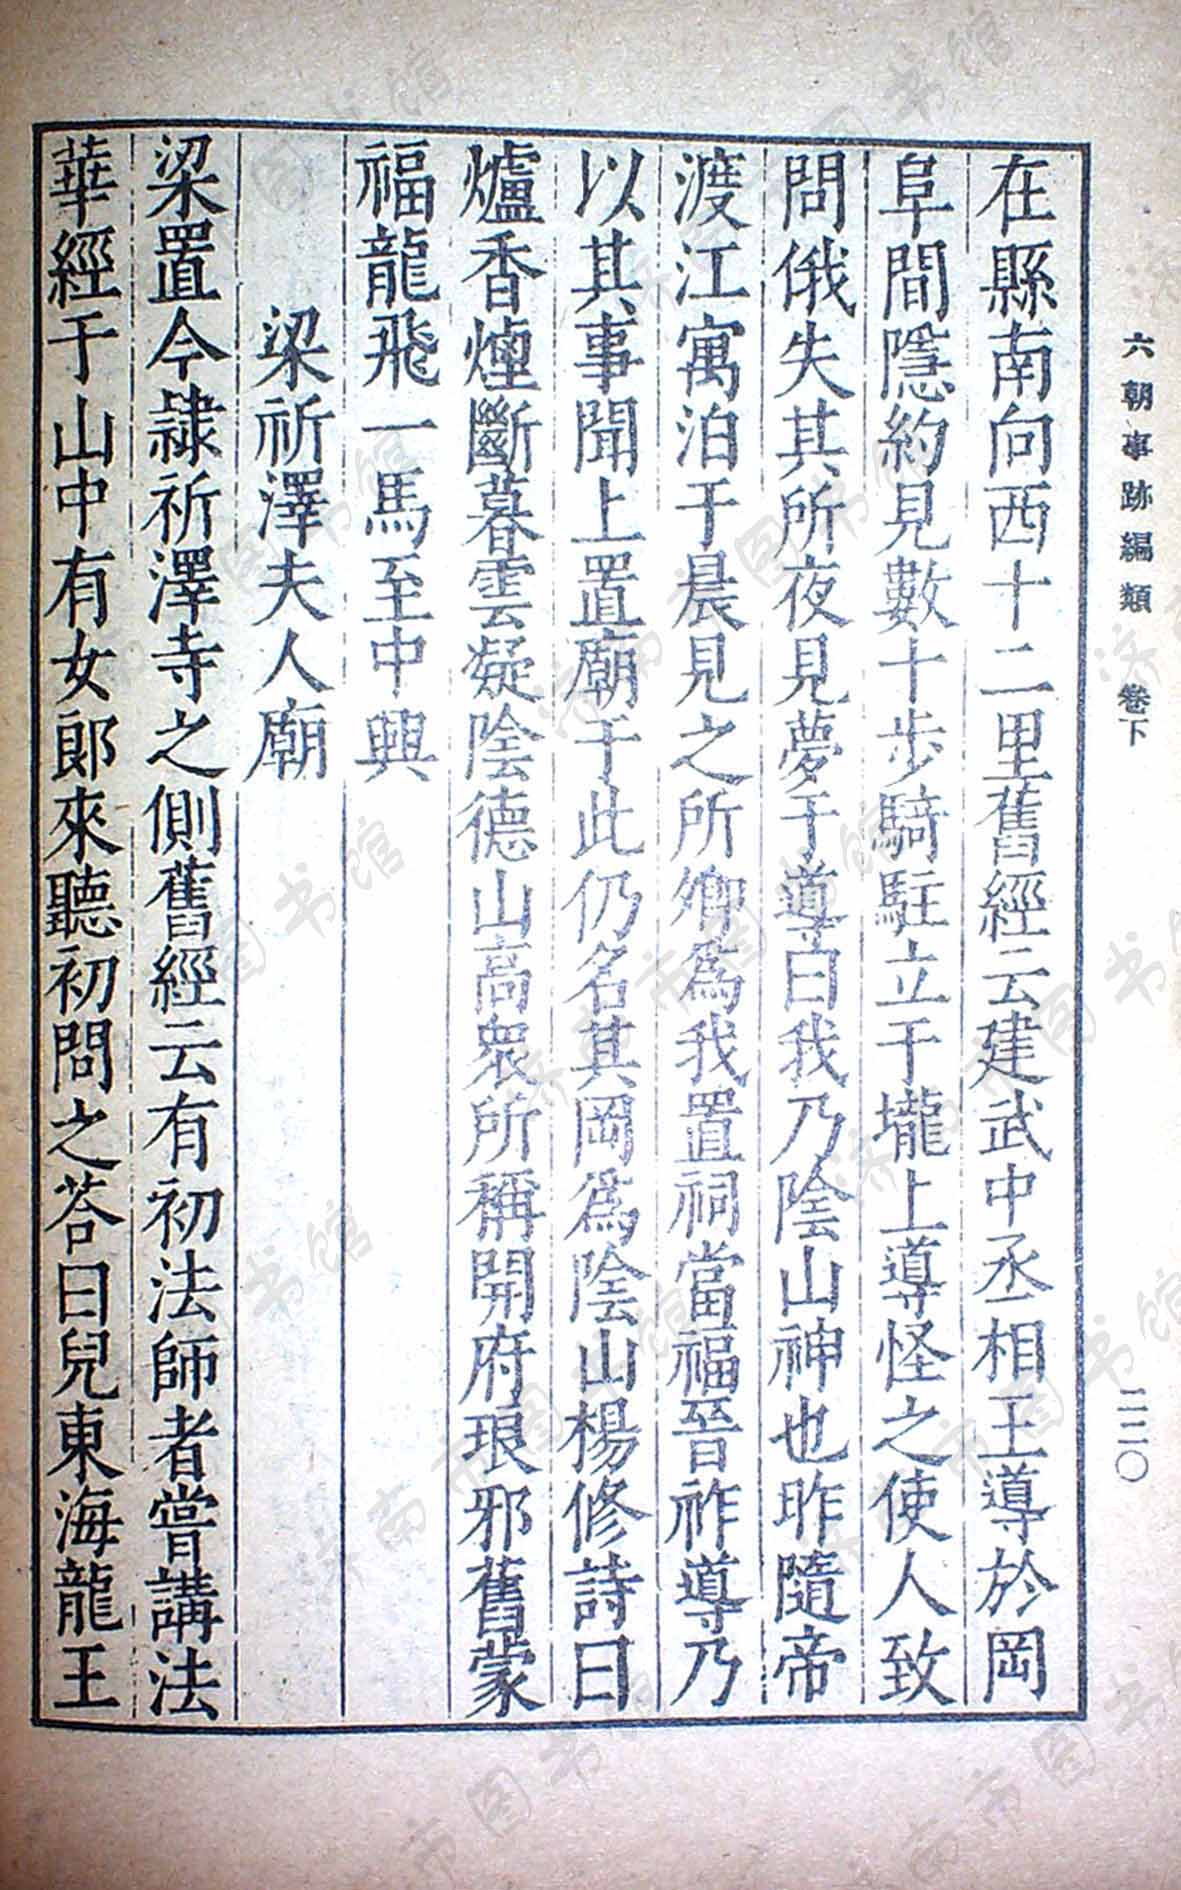 六朝事跡編類 卷下 二二〇
在縣南向西十二里舊經云建武中丞相王導於岡
阜間隱約見數十步騎駐立于壠上導怪之使人致
問俄失其所夜見夢于導曰我乃陰山神也昨隨帝
渡江寓泊于晨見之所卿爲我置祠當福晉祚導乃
以其事聞上置廟于此仍名其岡爲陰山楊修詩曰
爐香煙斷暮雲凝陰德山高衆所稱開府琅邪舊蒙
福龍飛一馬至中興
梁祈澤夫人廟
梁置今隸祈澤寺之側舊經云有初法師者嘗講法
華經于山中有女郎來聽初問之荅曰兒東海龍王
济南市图书馆